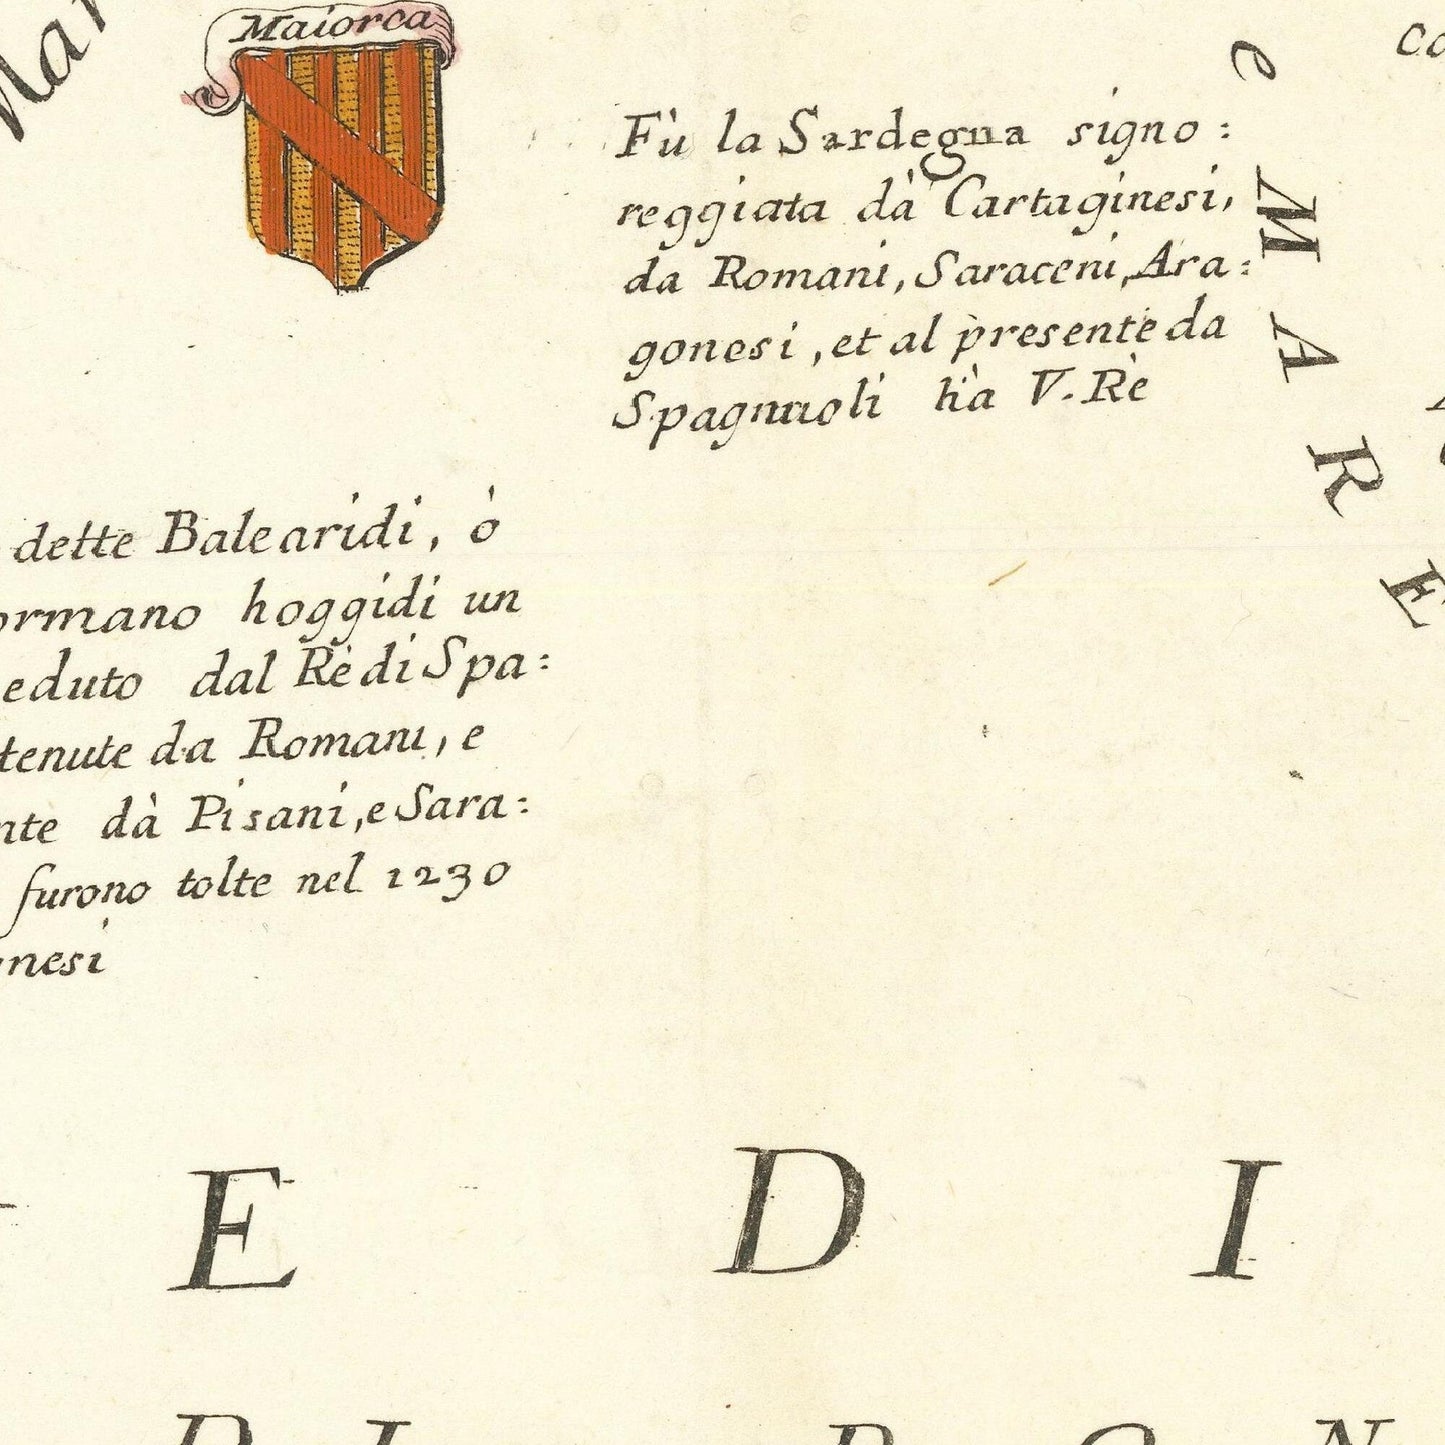 Maiorca
Fù la Sardegna signo:
reggiata dà Cartaginesi,
da Romani, Saraceni, Ara:
gonesi, et al presente da
Spagnuoli hà V. Rè
dette Balearidi, ò
ormano hoggidi un
eduto dal Rè di Spa:
tenute da Romani, e
nte dà Pisani, e Sara:
furono tolte nel 1230
nesi
e
MARE
E D I